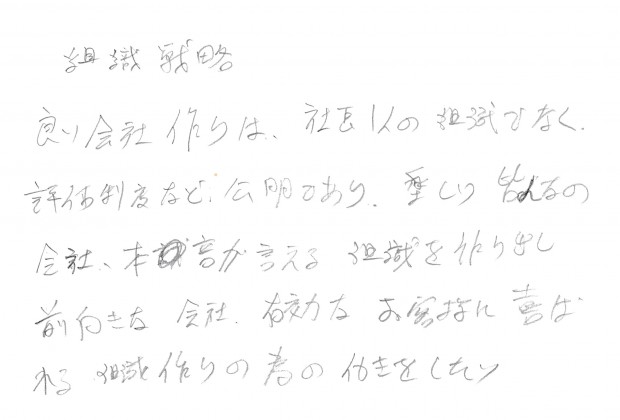 組織戦略
良い会社作りは、社長1人の組織でなく、
評価制度など、公明であり、楽しい皆んなの
会社、本音が言える組織を作り出し
前向きな会社、有効なお客様に喜ば
れる組織作りの為の働きをしたい